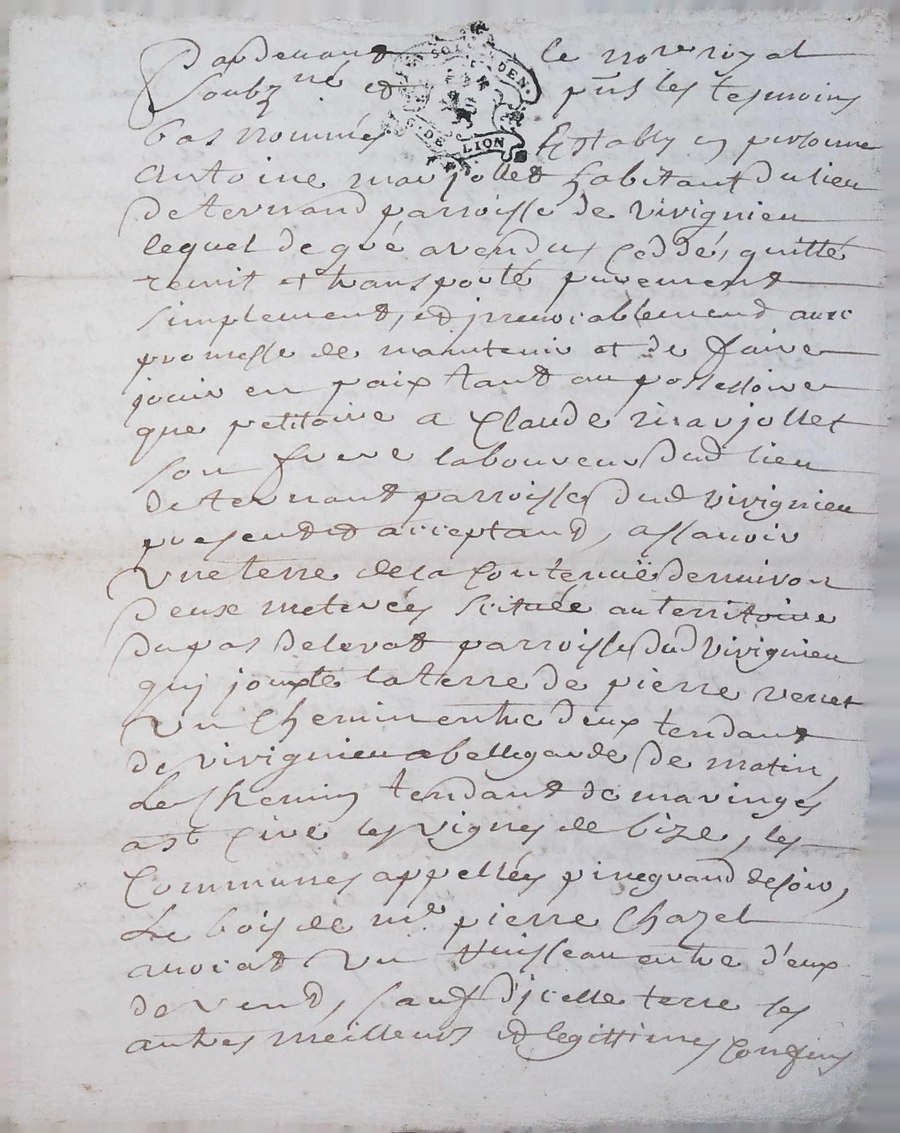 Pardevant le no.re royal
soubz.né et p.ns les tesmoins
bas nommés Establÿ en personne
antoine marjollet habitant du lieu
deternand parroisse de virignieu
lequel de gré avendu, Ceddé, quitté
remit et transporté purement
simplement, et jrrevocablement avec
promesse de maintenir et de faire
jouir en paix tant au possessoire
que petitoire a Claude marjollet
son frere laboureur dud lieu
deternant parroisse dud virignieu
present et acceptant, assavoir
Vne terre dela Contenuë denviron
deux meterées scituée au territoire
du pas delerat parroisse dud Virignieu
quj jouxte laterre de pierre verret
Vn Chemin entre deux tendant
de virignieu abellegarde de matin,
Le Chemin tendant de maringes
a st Cire les vignes de bize, les
Communes appellées pinegrand de soir,
Le bois de m.e pierre Chazel
avocat Vn ruisseau entre d'eux
de vend, sauf d'jcelle terre les
autres meilleurs et legittimes Confins
SOL DEN.
G. DE LION